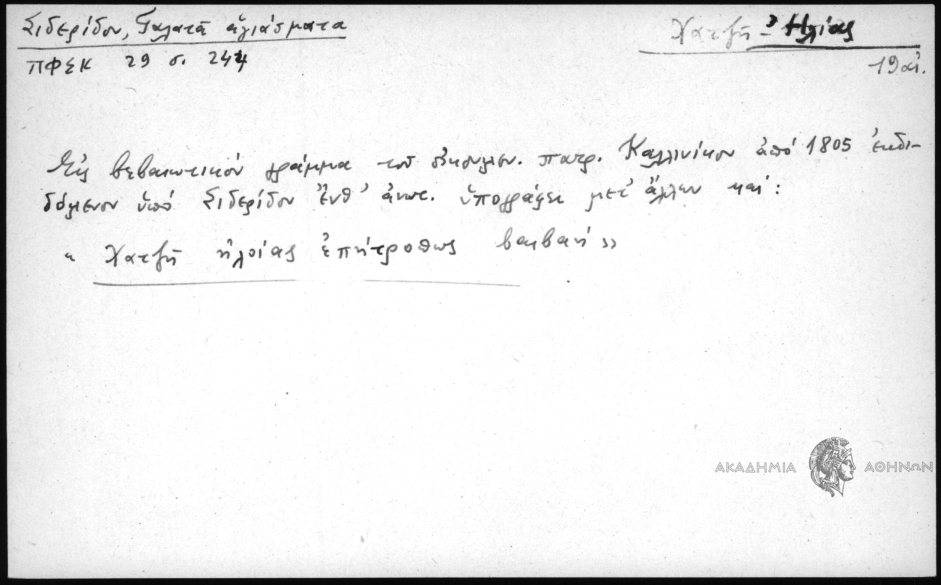 Σιδερίδου, Γαλατᾶ ἁγιάσματα
Χατζῆ - Ἠλίας
ΠΦΣΚ 29 σ. 244
19 αἰ.
Εἰς βεβαιωτικόν γράμμα τοῦ οἰκουμεν. πατρ. Καλλινίκου ἀπό 1805 ἐκδι-
δόμενον ὑπό Σιδερίδου ἔνθ' ἀνωτ. ὑπογράφει μετ' ἄλλων καί:
« Χατζῆ ἠλοίας ἐπήτροθως βεκβαή »
ΑΚΑΔΗΜΙΑ ΑΘΗΝΩΝ